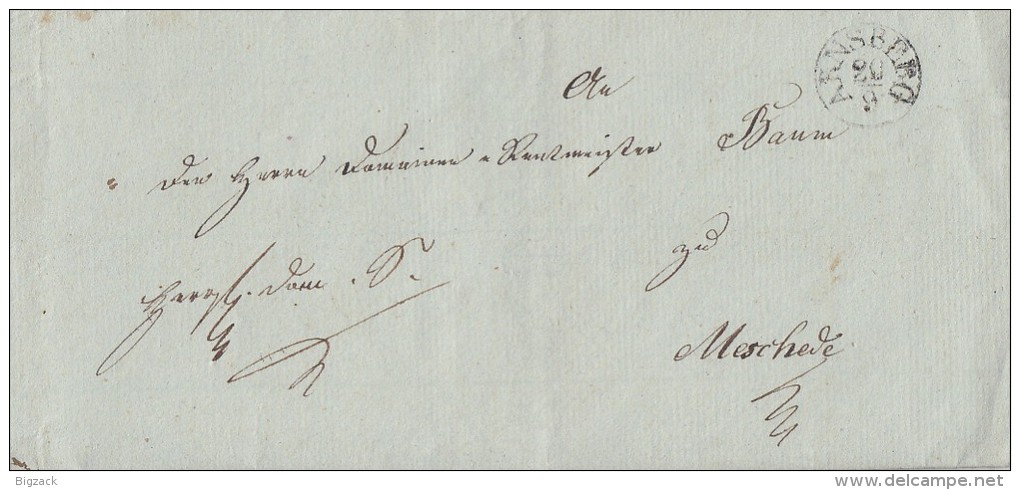 ARNSBERG
20
9
An
den Herrn Domainen-Rentmeister Baum
zu
Herrsch. Dom. S.
Meschede
Bigzack
www.delcampe.net